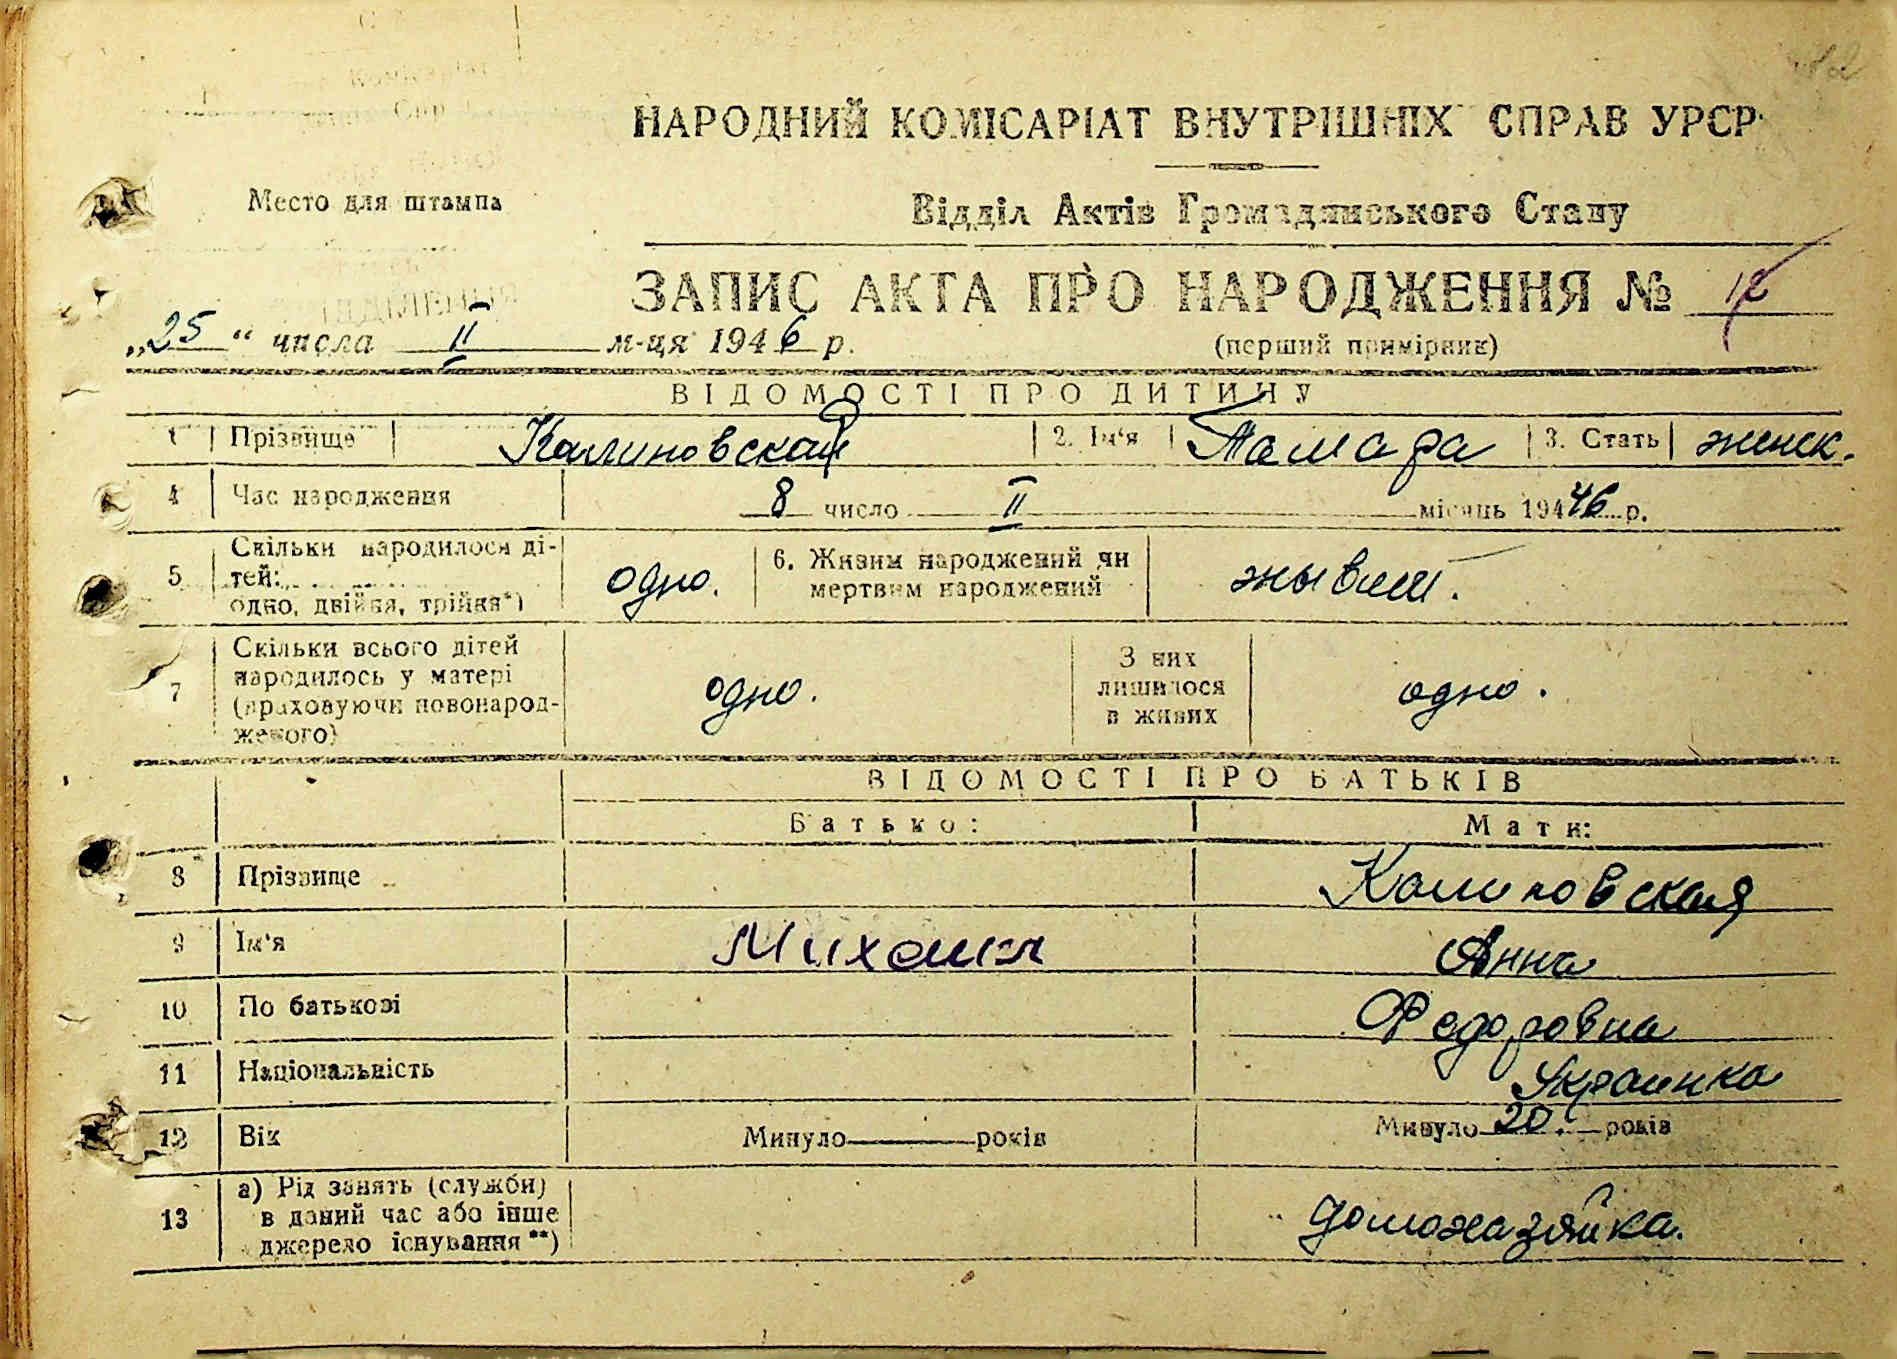 НАРОДНИЙ КОМІСАРІАТ ВНУТРІШНІХ СПРАВ УРСР
Место для штампа
Відділ Актів Громадянського Стану
ЗАПИС АКТА ПРО НАРОДЖЕННЯ №
„25“ числа II м-ця 1946 р.
(перший примірник)
ВІДОМОСТІ ПРО ДИТИНУ
1 Прізвище Калиновская 2. Ім'я Тамара 3. Стать женск.
4 Час народження 8 число II місяць 19446 р.
5 Скільки народилося ді-
тей:
одно, двійня, трійня*)
одно.
6. Живим народжений чи
мертвим народжений
жывым.
7 Скільки всього дітей
народилось у матері
(враховуючи новонарод-
женого)
одно.
З них
лишилося
в живих
одно.
ВІДОМОСТІ ПРО БАТЬКІВ
Батько: Мати:
8 Прізвище Калиновская
9 Ім'я Михаил Анна
10 По батькові Федоровна
11 Національність Украинка
12 Вік Минуло років Минуло 20. років
13 а) Рід занять (служби)
в даний час або інше
джерело існування**)
домохазяйка.